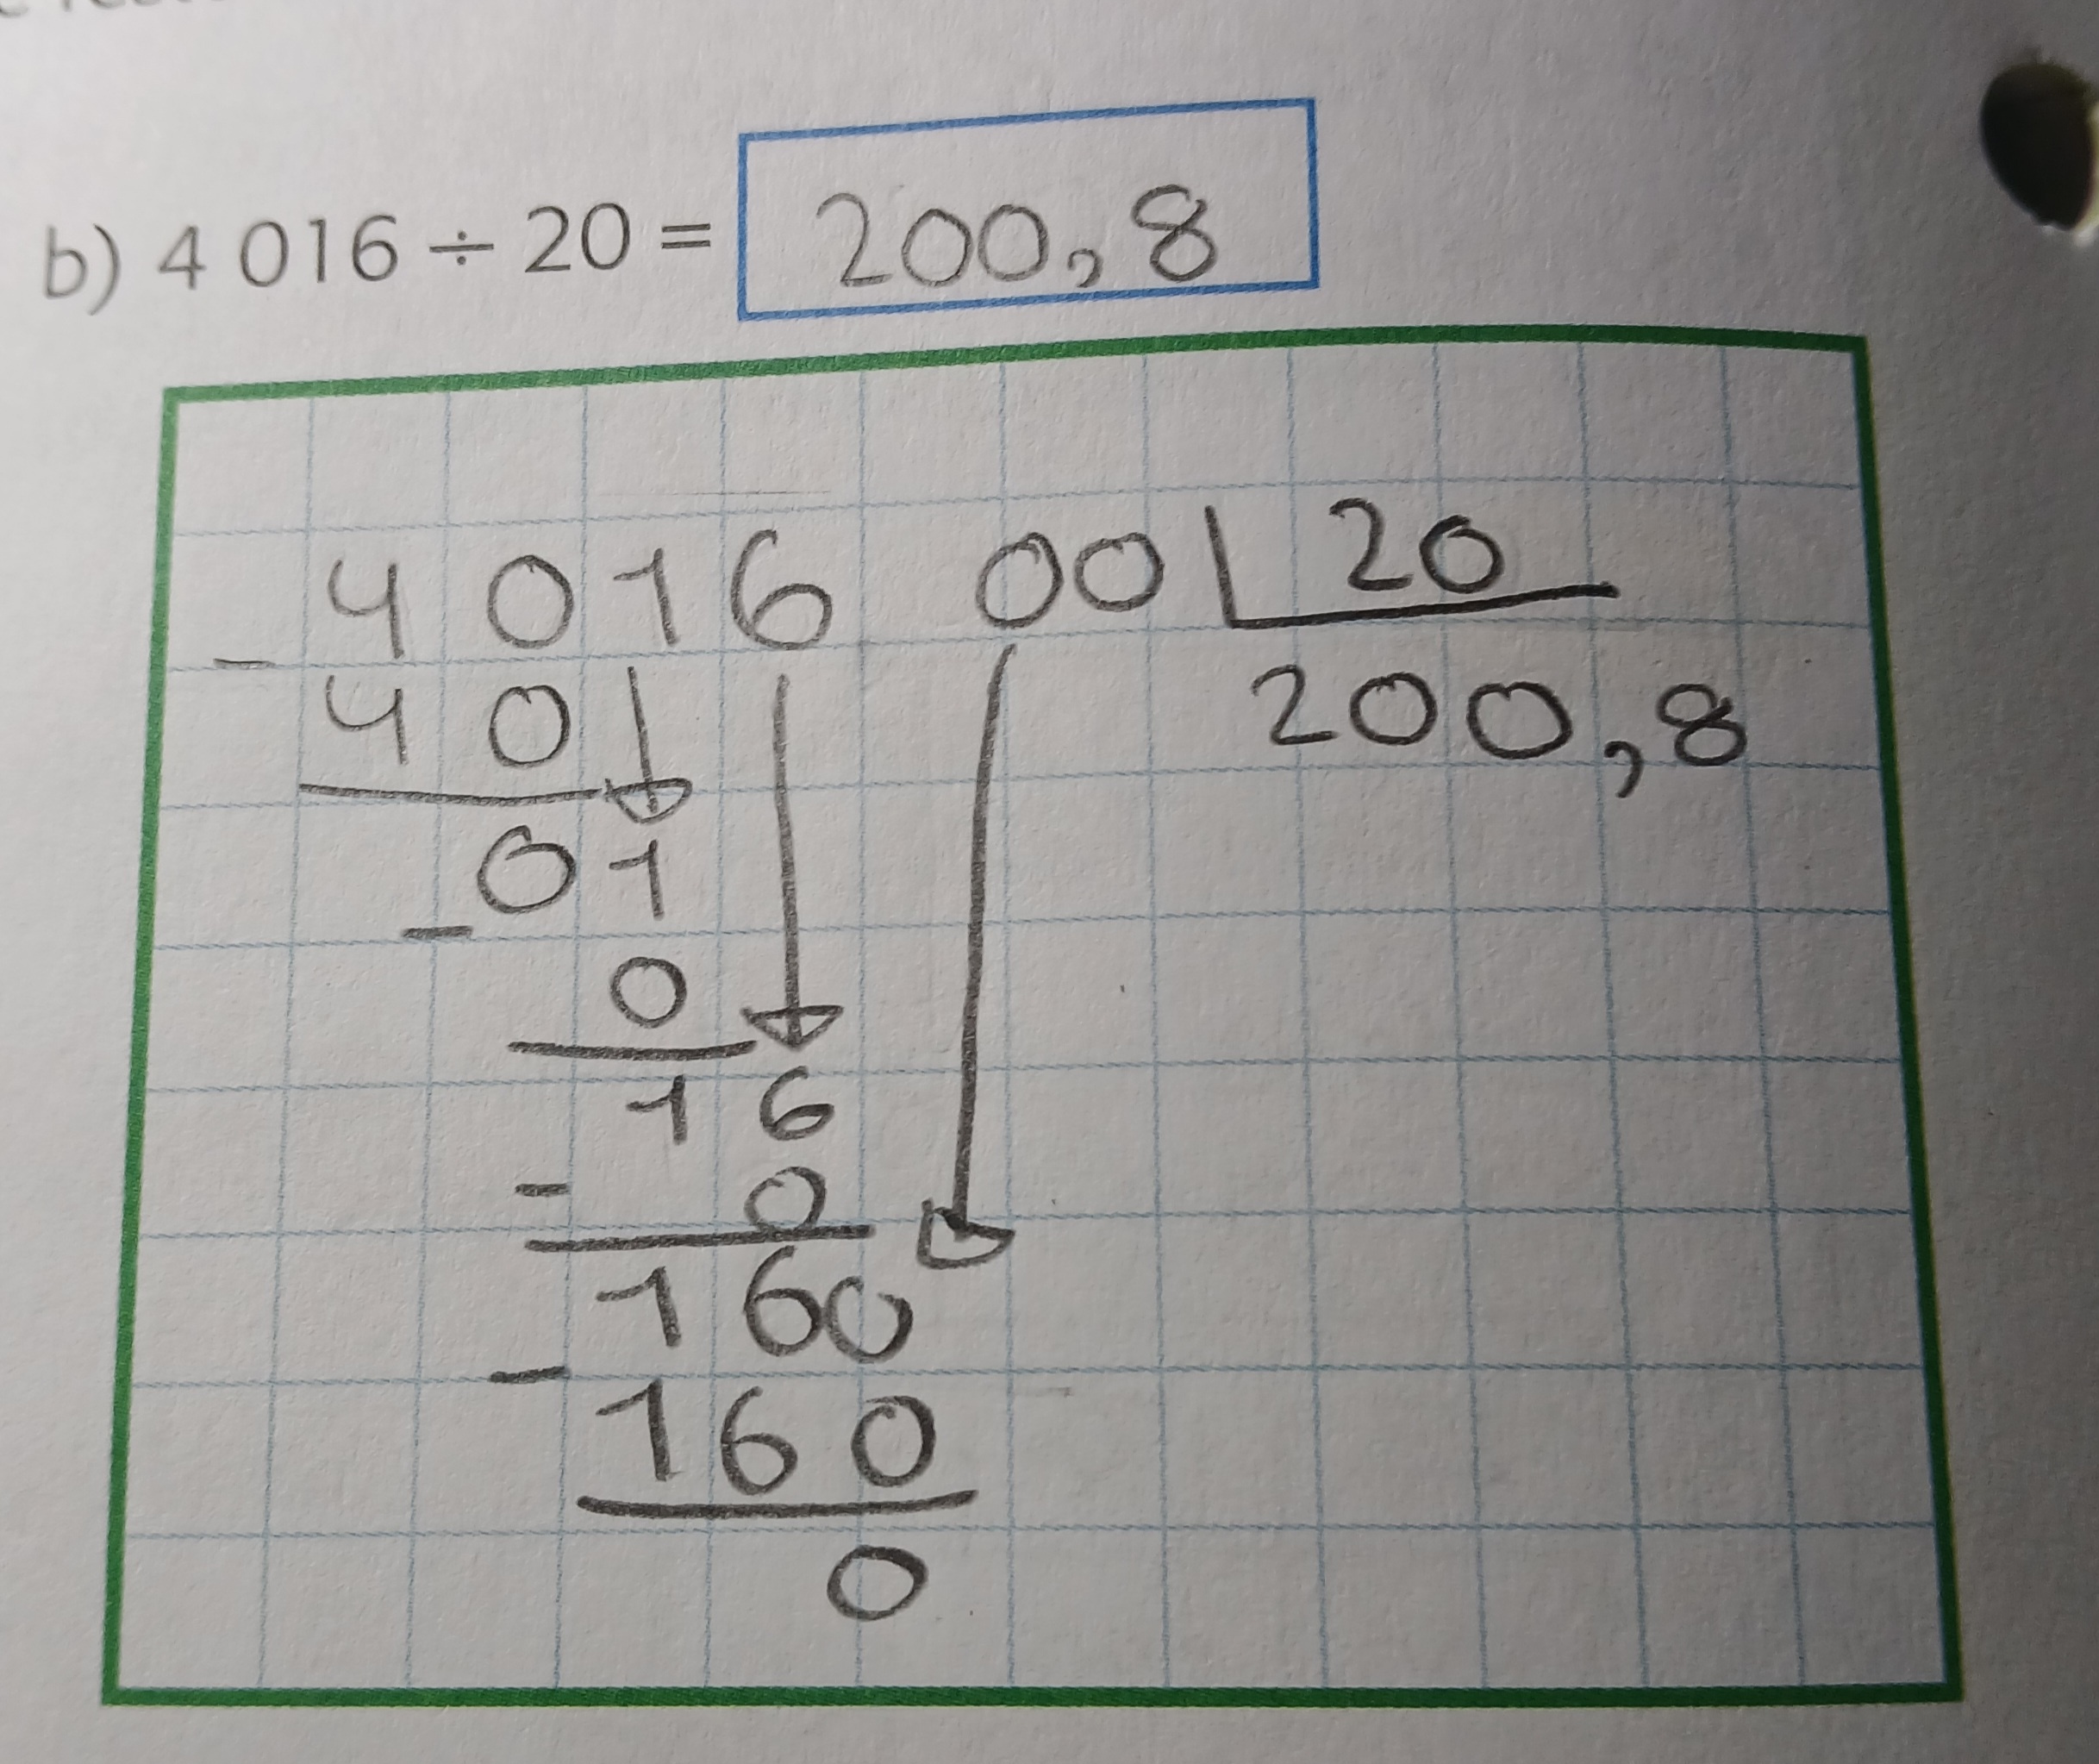 b) 4 016 ÷ 20 = 200,8
4016 00 20
- 40 200,8
01
- 0
16
- 0
160
- 160
0